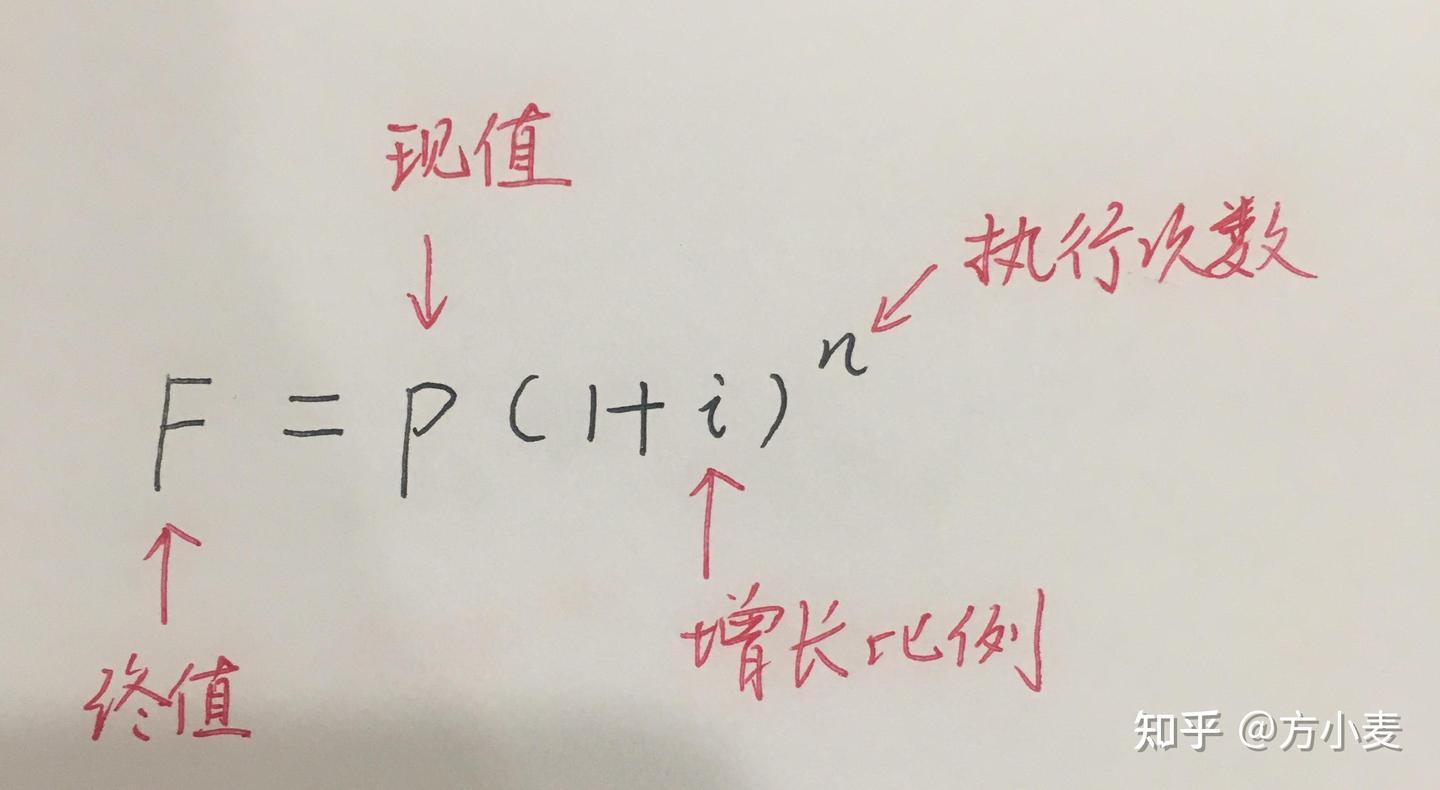 现值
执行次数
F = P(1+i)^n
增长比例
终值
知乎 @方小麦